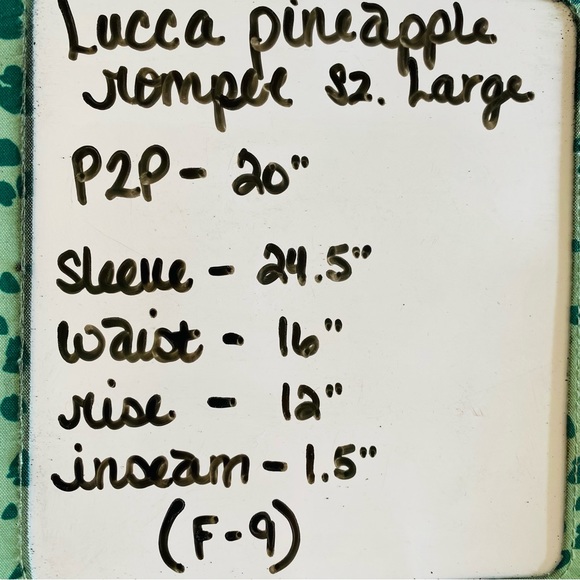 Lucca pineapple
romper sz. Large
P2P - 20"
Sleeve - 24.5"
waist - 16"
rise - 12"
inseam - 1.5"
(F-9)